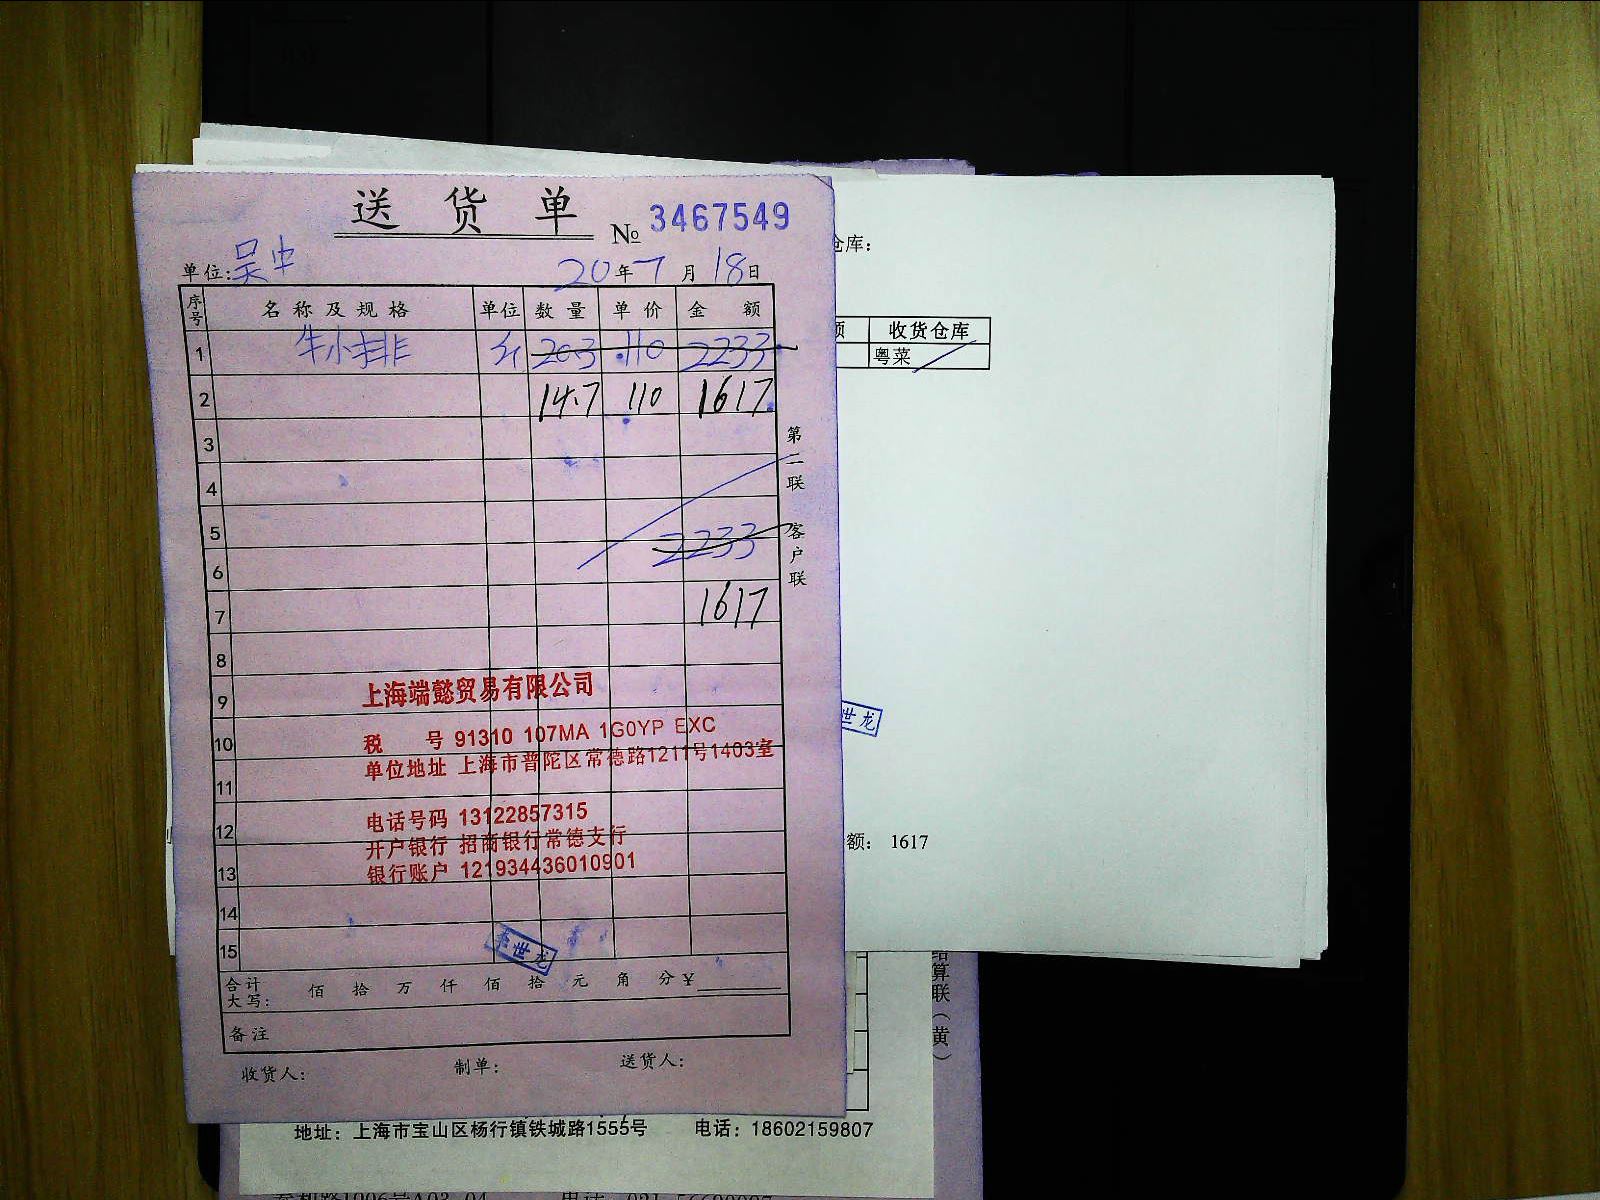 送货单
№ 3467549
单位:吴中 20年7月18日
序号 名称及规格 单位 数量 单价 金额
1 牛小排 斤 20.3 110 2233
2 14.7 110 1617
3
4
5
2233
6
7 1617
8
9
上海端懿贸易有限公司
10
税 号 91310 107MA 1G0YP EXC
单位地址 上海市普陀区常德路1211号1403室
11
电话号码 13122857315
12
开户银行 招商银行常德支行
13
银行账户 121934436010901
14
15
世龙
合计大写: 佰 拾 万 仟 佰 拾 元 角 分 ¥
备注
收货人: 制单: 送货人:
第二联 客户联
仓库:
额 收货仓库
粤菜
世龙
额: 1617
结算联(黄)
地址:上海市宝山区杨行镇铁城路1555号 电话:18602159807